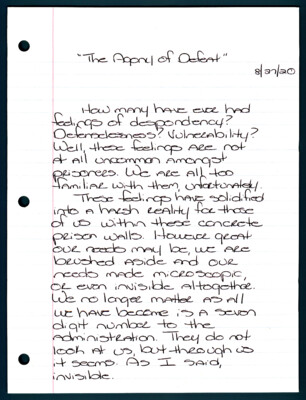 "The Agony of Defeat"
8/27/20
How many have ever had
feelings of despondency?
Defenselessness? Vulnerability?
Well, these feelings are not
at all uncommon amongst
prisoners. We are all too
familiar with them, unfortunately.
These feelings have solidified
into a harsh reality for those
of us within these concrete
prison walls. However great
our needs may be, we are
brushed aside and our
needs made microscopic,
or even invisible altogether.
We no longer matter as all
we have become is a seven
digit number to the
administration. They do not
look at us, but through us
it seems. As I said,
invisible.